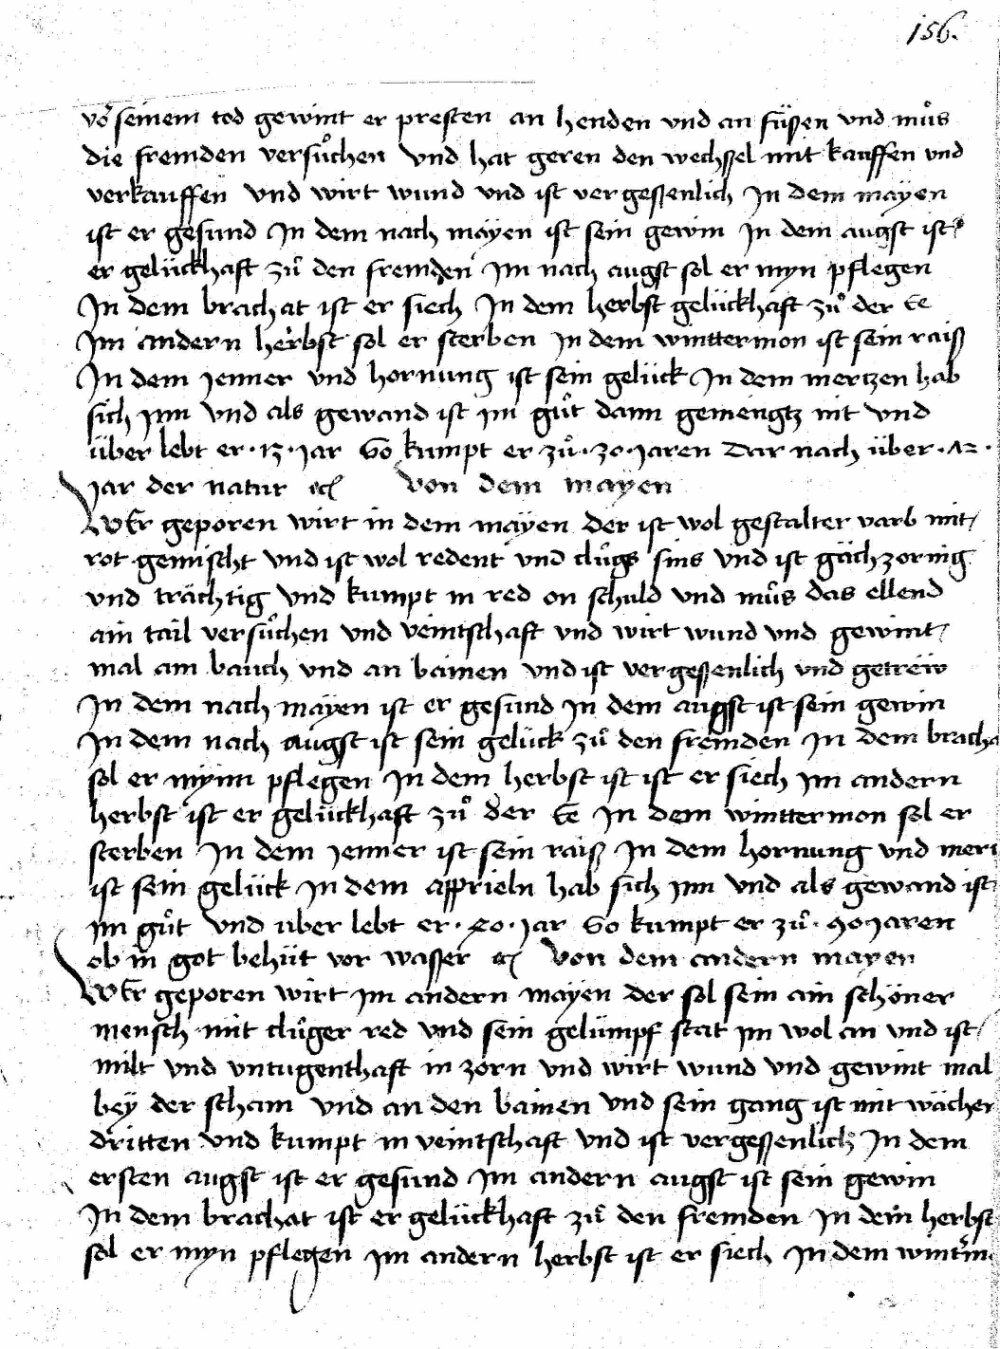 156.
vor̄ seinem tod gewint er presten an henden vnd an füßen vnd můs
die fremden versůchen vnd hat geren den wechßel mit kauffen vnd
verkauffen vnd wirt wund vnd ist vergessenlich In dem mayen
ist er gesund In dem nach mayen ist sein gewin In dem augst ist
er gelückhaft zů den fremden Im nach augst sol er myn pflegen
In dem brachat ist er siech In dem herbst gelückhaft zů der Ee
Im andern herbst sol er sterben In dem winttermon ist sein raiß
In dem Jenner vnd hornung ist sein gelück In dem mertzen hab
sich Inn vnd als gewand ist Im gůt dann gemengtz nit vnd
über lebt er · 13 · Jar So kumpt er zů · 30 · Jaren Dar nach über · 42 ·
Jar der natur etc̄ Von dem mayen
WEr geporen wirt in dem mayen der ist wol gestalter varb mit
rot gemischt vnd ist wol redent vnd clůgs sins vnd ist gächzornig
vnd trächtig vnd kumpt in red on schuld vnd můs das ellend
ain tail versůchen vnd veintschaft vnd wirt wund vnd gewint
mal am bauch vnd an bainen vnd ist vergessenlich vnd getrëw
In dem nach mayen ist er gesund In dem augst ist sein gewin
In dem nach augst ist sein gelück zů den fremden In dem bracha
sol er mynn pflegen In dem herbst ist ist er siech Im andern
herbst ist er gelückhaft zů der Ee In dem winttermon sol er
sterben In dem Jenner ist sein raiß In dem hornung vnd mer
ist sein gelück In dem apprieln hab sich Inn vnd als gewand ist
Im gůt vnd über lebt er · 50 · Jar So kumpt er zů · 90 Jaren
ob in got behüt vor wasser etc̄ Von dem andern mayen
WEr geporen wirt Im andern mayen der sol sein ain schöner
mensch mit clůger red vnd sein gelümpf stat Im wol an vnd ist
milt vnd vntugenthaft in zorn vnd wirt wund vnd gewint mal
beÿ der scham vnd an den bainen vnd sein gang ist mit wächer
dritten vnd kumpt in veintschaft vnd ist vergessenlich In dem
ersten augst ist er gesund Im andern augst ist sein gewin
In dem brachat ist er gelückhaft zů den fremden In dem herbst
sol er myn pflegen Im andern herbst ist er siech In dem wint̄m